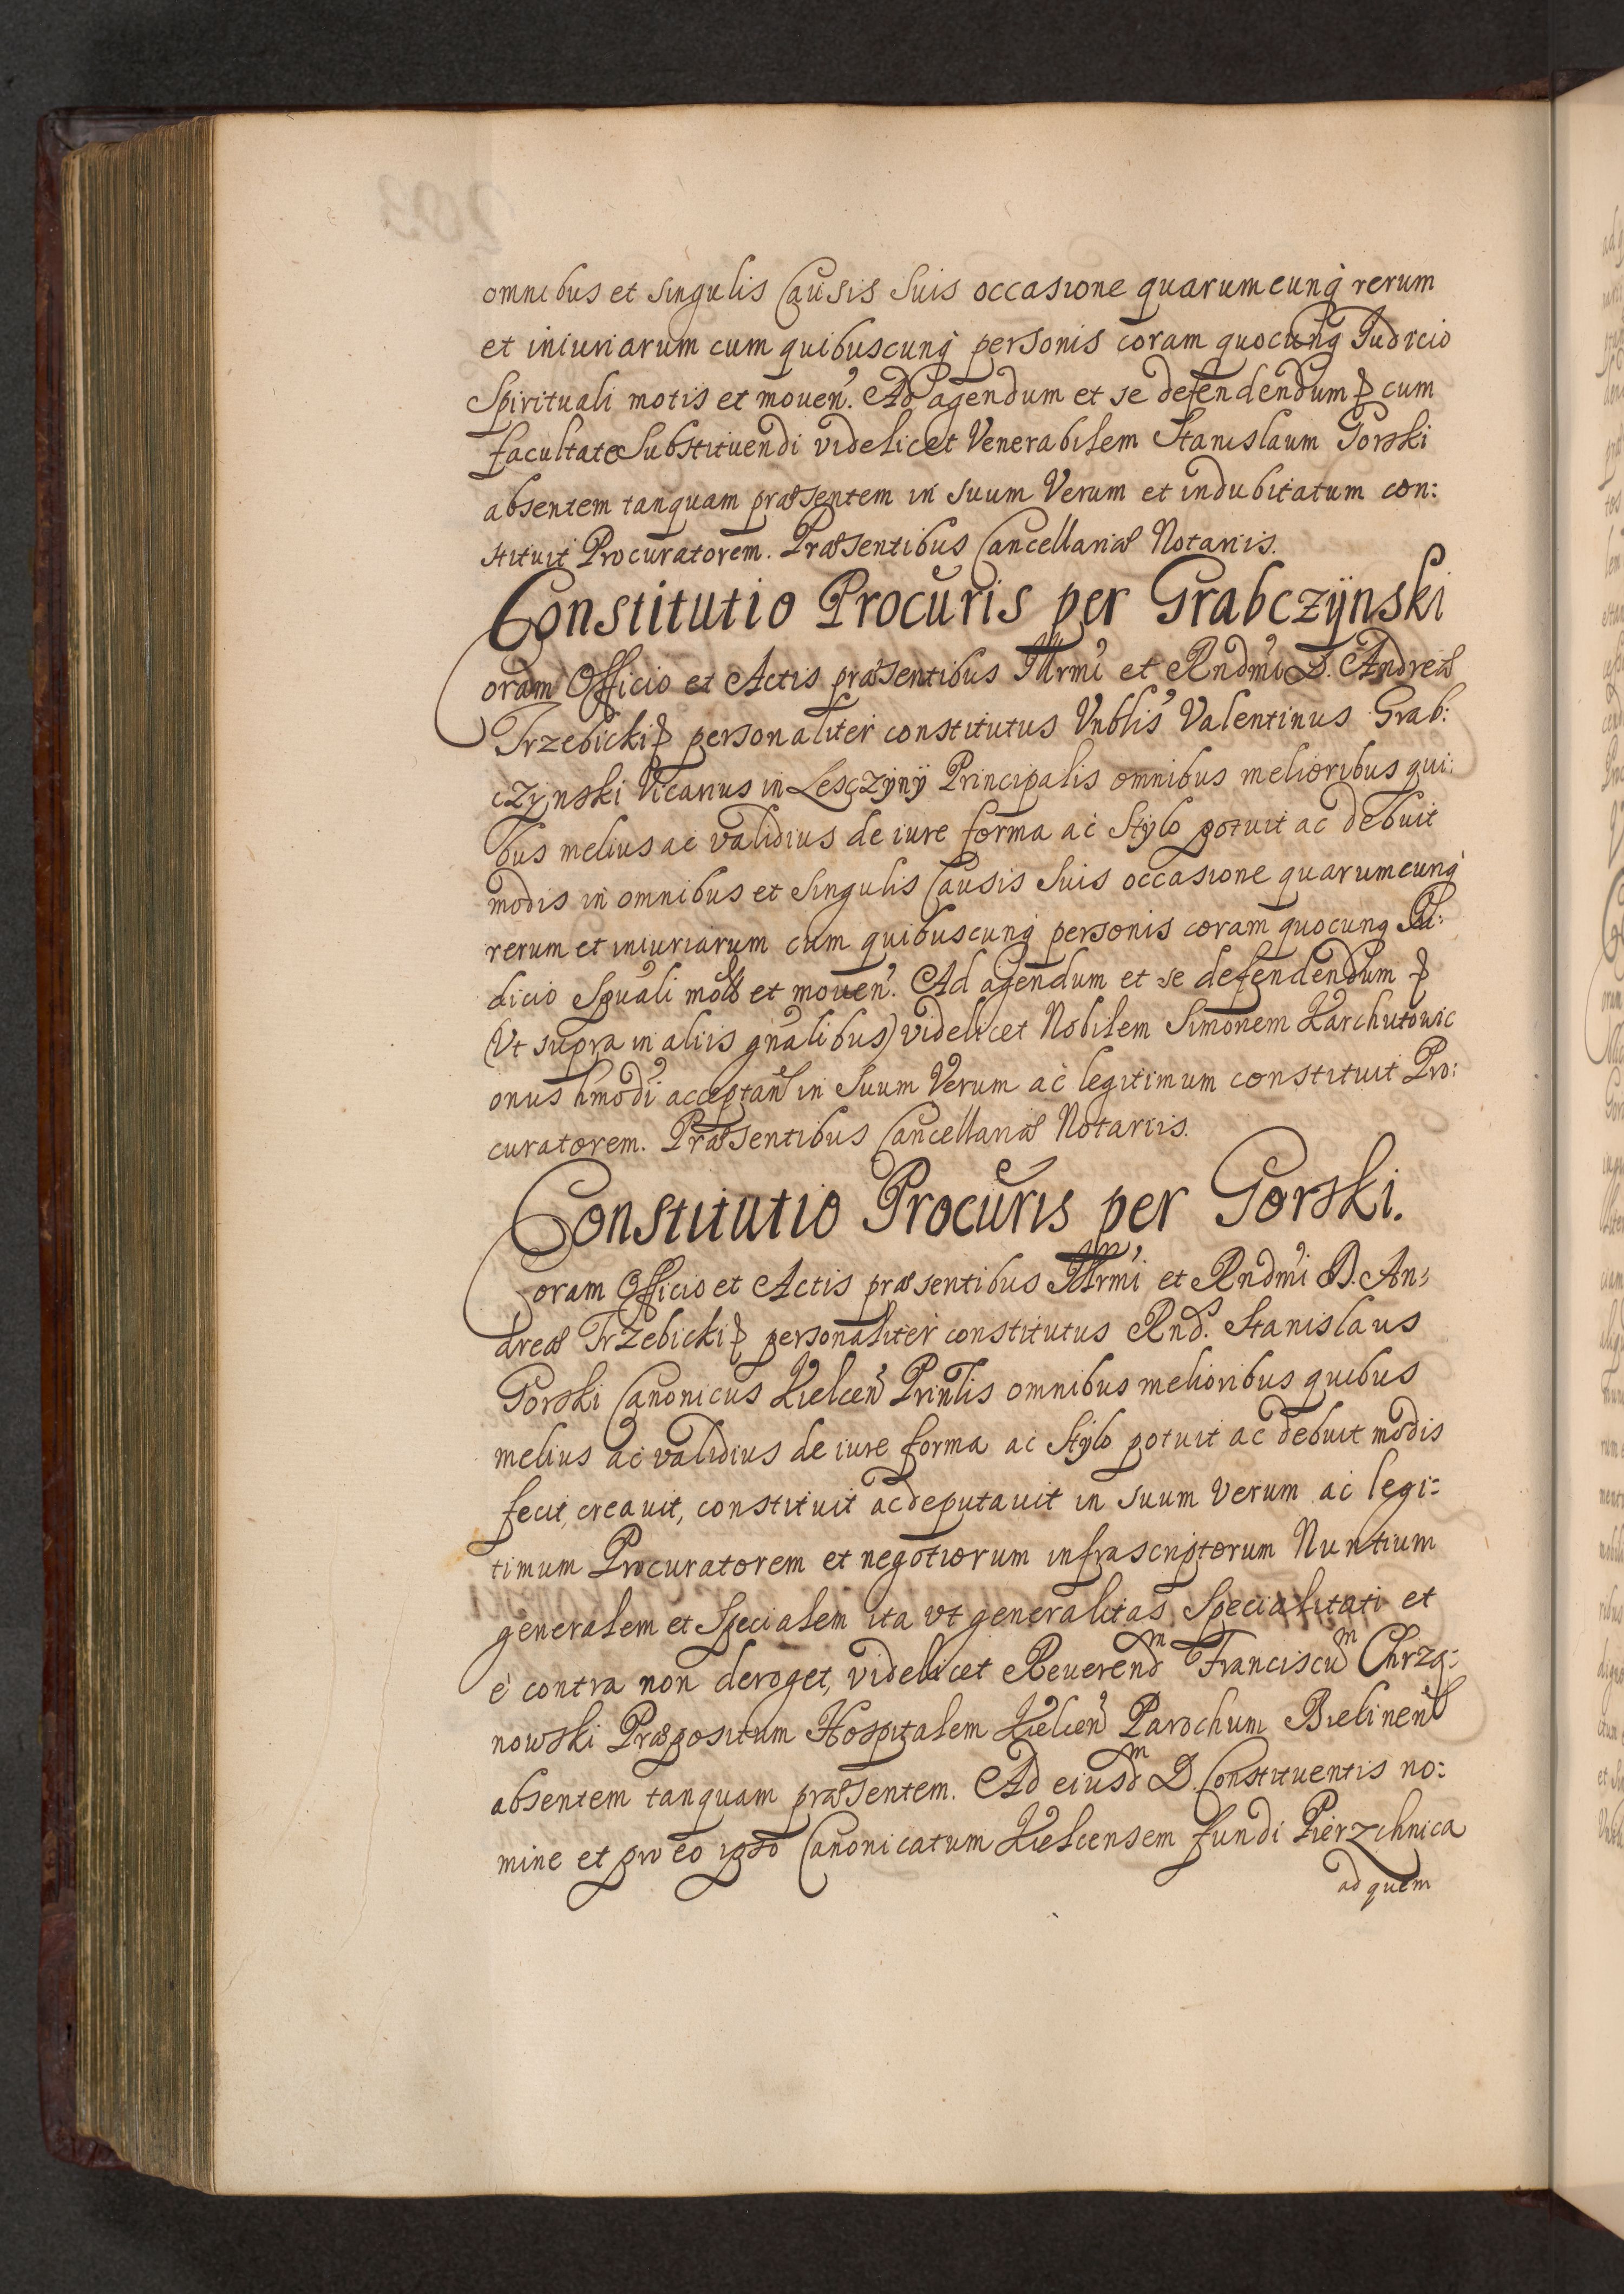 omnibus et singulis Causis suis occasione quarumcunq rerum
et iniuriarum cum quibuscunq personis coram quocunq Judicio
Spirituali motis et mouen. Ad agendum et se defendendum cum
facultate substituendi videlicet Venerabilem Stanislaum Gorski
absentem tanquam præsentem in suum Verum et indubitatum con:
stituit Procuratorem. Præsentibus Cancellariæ Notariis.
Constitutio Procuris per Grabczÿnski
Coram Officio et Actis præsentibus Illrmi et Rndmi D. Andreæ
Trzebicki personaliter constitutus Vnblis Valentinus Grab:
czÿnski Vicarius in Lesczÿnÿ Principalis omnibus melioribus qui:
bus melius ac validius de iure forma ac Stÿlo potuit ac debuit
modis in omnibus et singulis Causis suis occasione quarumcunq
rerum et iniuriarum cum quibuscunq personis coram quocunq Ju:
dicio Spuali et mouen. Ad agendum et se defendendum
(Vt supra in aliis gnalibus) videlicet Nobilem Simonem Karchutowic
onus hmodi acceptan in suum Verum ac legitimum constituit Pro:
curatorem. Præsentibus Cancellariæ Notariis.
Constitutio Procuris per Gorski.
Coram Officio et Actis præsentibus Illrmi et Rndmi D. An:
dreæ Trzebicki personaliter constitutus Rnd. Stanislaus
Gorski Canonicus Kielcen Prinlis omnibus melioribus quibus
melius ac validius de iure forma ac Stÿlo potuit ac debuit modis
fecit, creauit, constituit ac deputauit in suum Verum ac legi:
timum Procuratorem et negotiorum infrascriptorum Nuntium
generalem et Specialem ita vt generalitas Specialitati et
è contra non deroget, videlicet Reuerendm Franciscum Chrzą:
nowski Præpositum Hospitalem Kielcen Parochum Bielinen
absentem tanquam præsentem. Ad eiusdm D. Constituentis no:
mine et pro eo ipso Canonicatum Kielcensem fundi Pierzchnica
ad quem